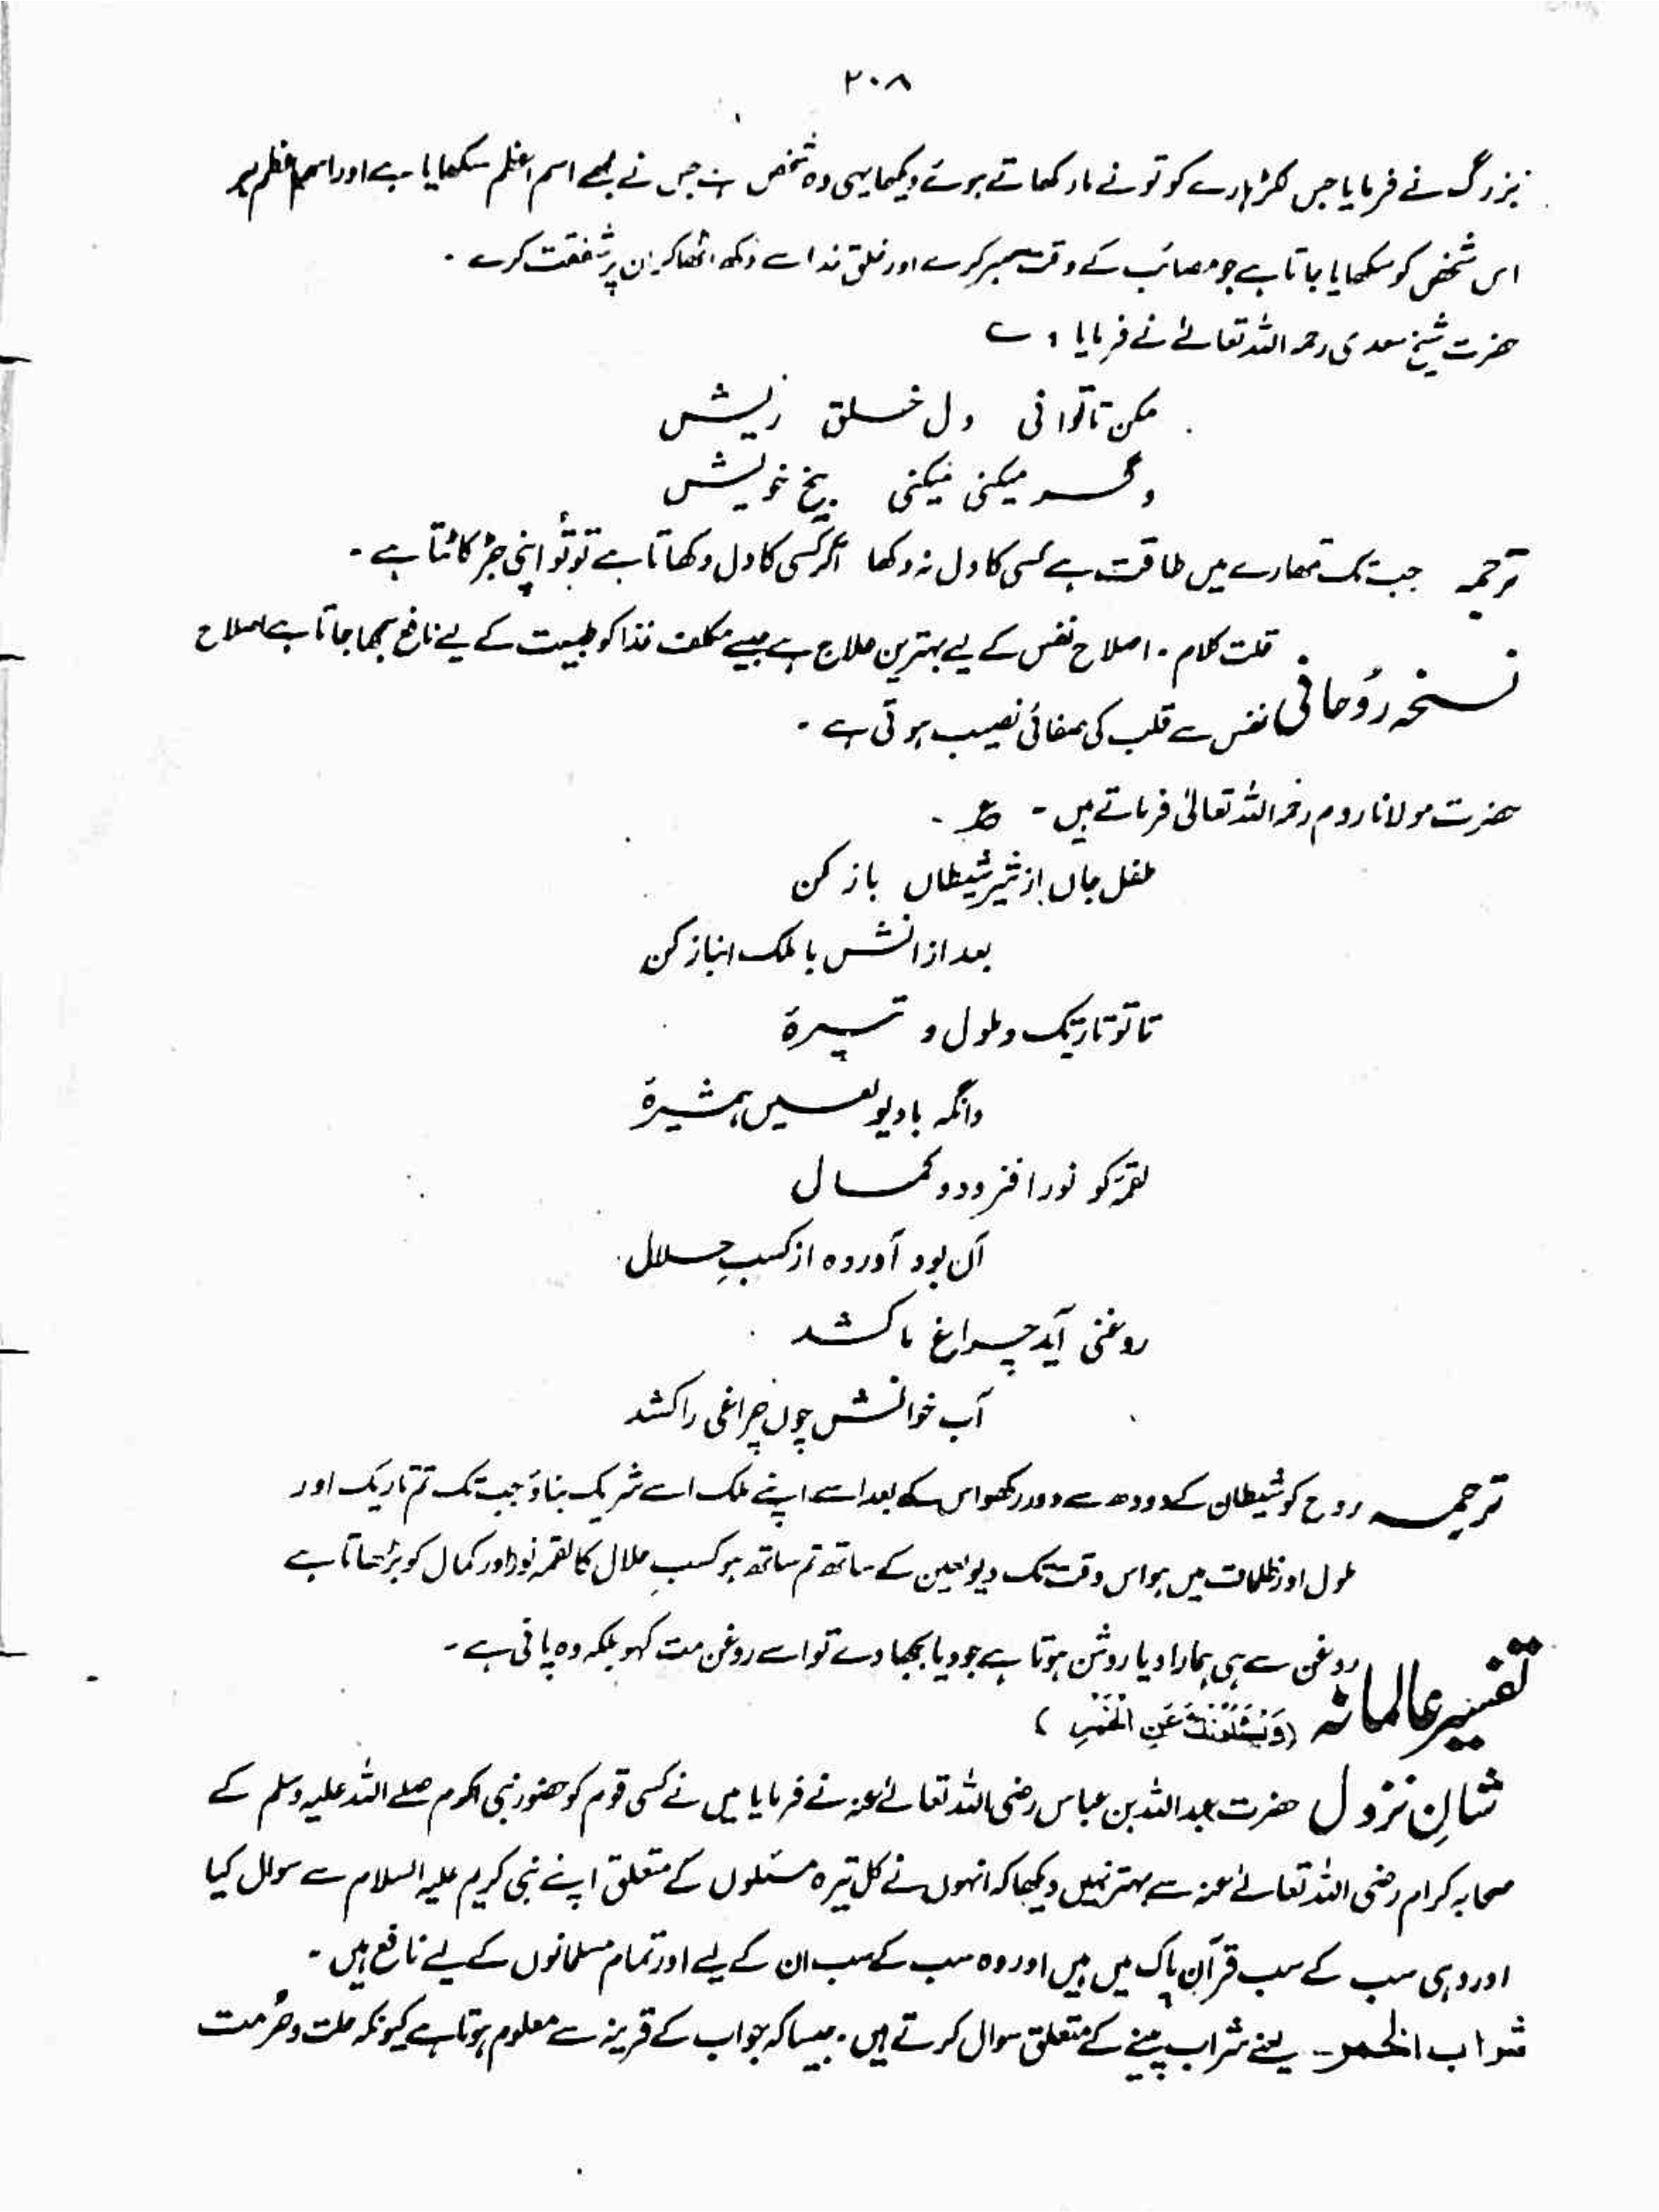 ۲۰۸
بزرگ نے فرمایا جس لکڑہارے کو تو نے مار کھاتے ہوئے دیکھا یہی وہ شخص ہے جس نے مجھے اسم اعظم سکھایا ہے اور اسم اعظم ہر
اس شخص کو سکھایا جاتا ہے جو مصائب کے وقت صبر کرے اور خلق خدا سے دکھ اٹھا کر ان پر شفقت کرے ۔
حضرت شیخ سعدی رحمہ اللہ تعالےٰ نے فرمایا ؎
مکن تا توانی دل خلق ریش
وگر میکنی میکنی بیخ خویش
ترجمہ جب تک تمھارے میں طاقت ہے کسی کا دل نہ دکھا اگر کسی کا دل دکھاتا ہے تو تُو اپنی جڑ کاٹتا ہے ۔
نسخہ رُوحانی قلت کلام ۔ اصلاح نفس کے لیے بہترین علاج ہے جیسے مکلف غذا کو طبیعت کے لیے نافع سمجھا جاتا ہے اصلاح
نفس سے قلب کی صفائی نصیب ہوتی ہے ۔
حضرت مولانا روم رحمہ اللہ تعالیٰ فرماتے ہیں ۔
طفل جاں از شیر شیطاں باز کن
بعد ازانش با ملک انباز کن
تا تو تاریک و ملول و تیرۂ
دانکہ با دیو لعیں ہمشیرۂ
لقمۂ کو نور افزود و کمال
آں بود آوردہ از کسبِ حلال
روغنی آید چراغ ما کشد
آب خوانش چوں چراغی را کشد
ترجمہ روح کو شیطان کے دودھ سے دور رکھو اس کے بعد اسے اپنے ملک اسے شریک بناؤ جب تک تم تاریک اور
ملول اور ظلمات میں ہو اس وقت تک دیو لعین کے ساتھ تم ساتھ ہو کسبِ حلال کا لقمہ نور اور کمال کو بڑھاتا ہے
روغن سے ہی ہمارا دیا روشن ہوتا ہے جو دیا بجھا دے تو اسے روغن مت کہو بلکہ وہ پانی ہے ۔
تفسیر عالمانہ (وَيَسْئَلُونَكَ عَنِ الْخَمْرِ)
شانِ نزول حضرت عبداللہ بن عباس رضی اللہ تعالےٰ عنہ نے فرمایا میں نے کسی قوم کو حضور نبی اکرم صلے اللہ علیہ وسلم کے
صحابہ کرام رضی اللہ تعالےٰ عنہ سے بہتر نہیں دیکھا کہ انہوں نے کل تیرہ مسئلوں کے متعلق اپنے نبی کریم علیہ السلام سے سوال کیا
اور وہی سب کے سب قرآن پاک میں ہیں اور وہ سب کے سب ان کے لیے اور تمام مسلمانوں کے لیے نافع ہیں ۔
شراب الخمر ۔ یعنے شراب پینے کے متعلق سوال کرتے ہیں ۔ جیسا کہ جواب کے قرینہ سے معلوم ہوتا ہے کیونکہ حلت و حُرمت